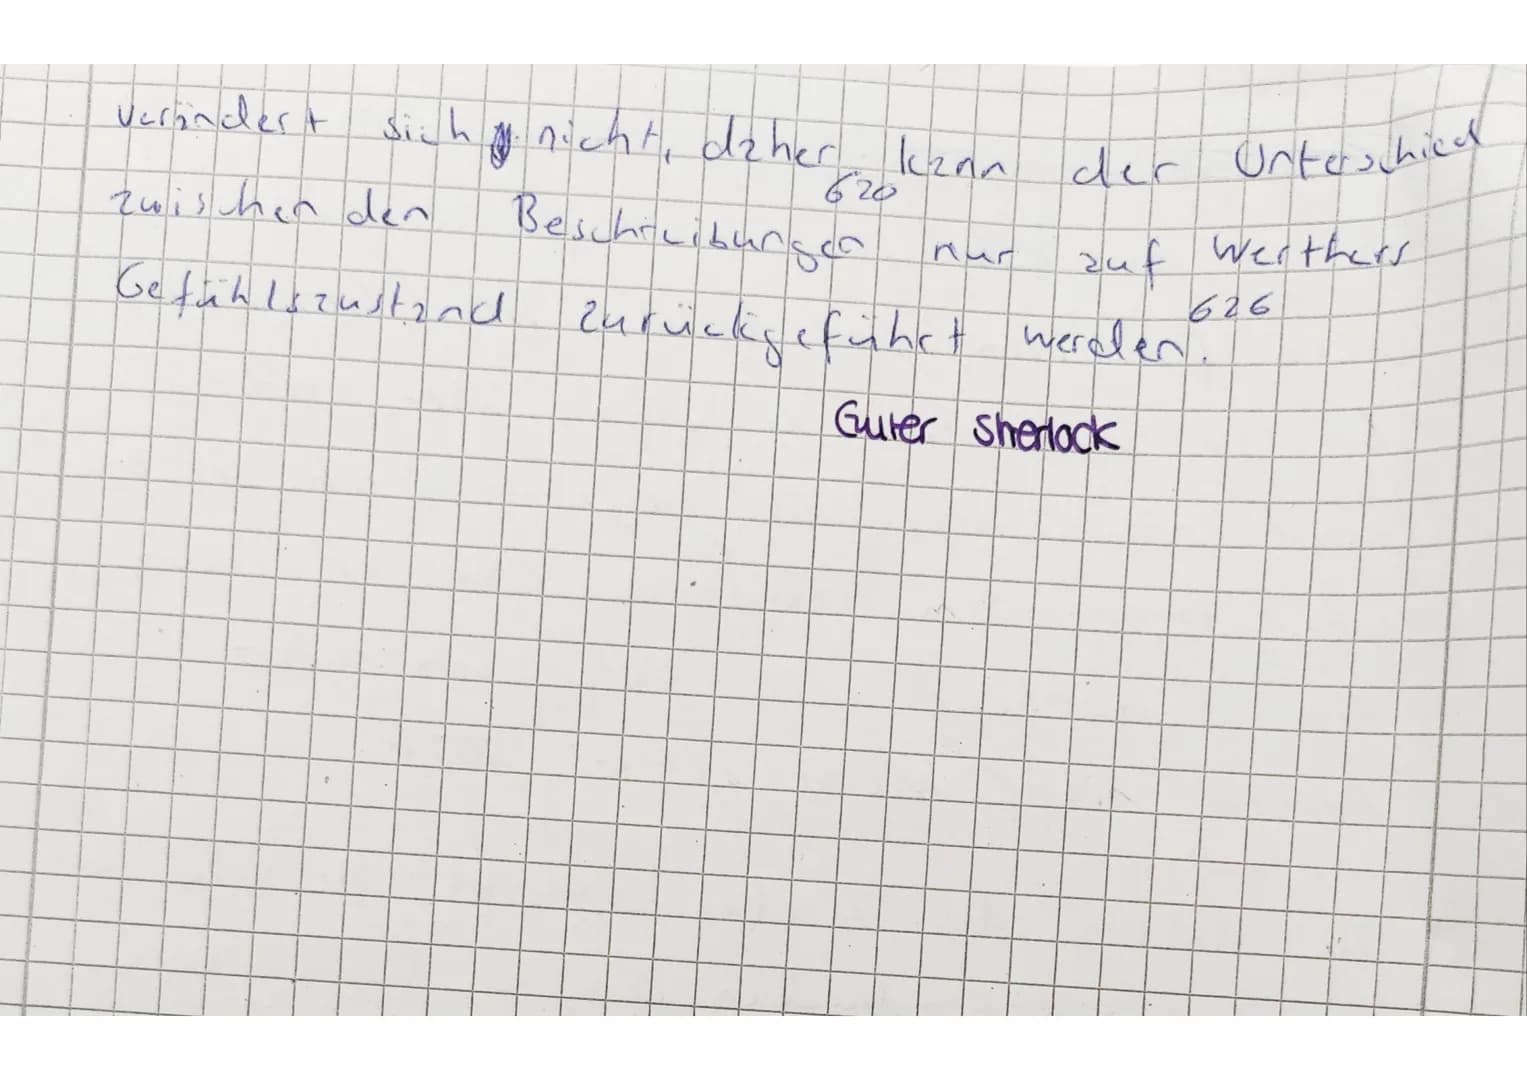 verändert sich nicht, daher kann der Unterschied
620
zwischen den Beschreibungen nur auf Werthers
626
Gefühlszustand zurückgeführt werden.
Guter Sherlock